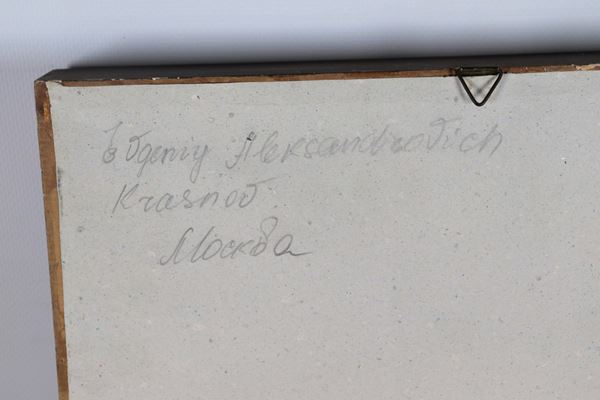 Evgeniy Aleksandrovich
Krasnov
Москва